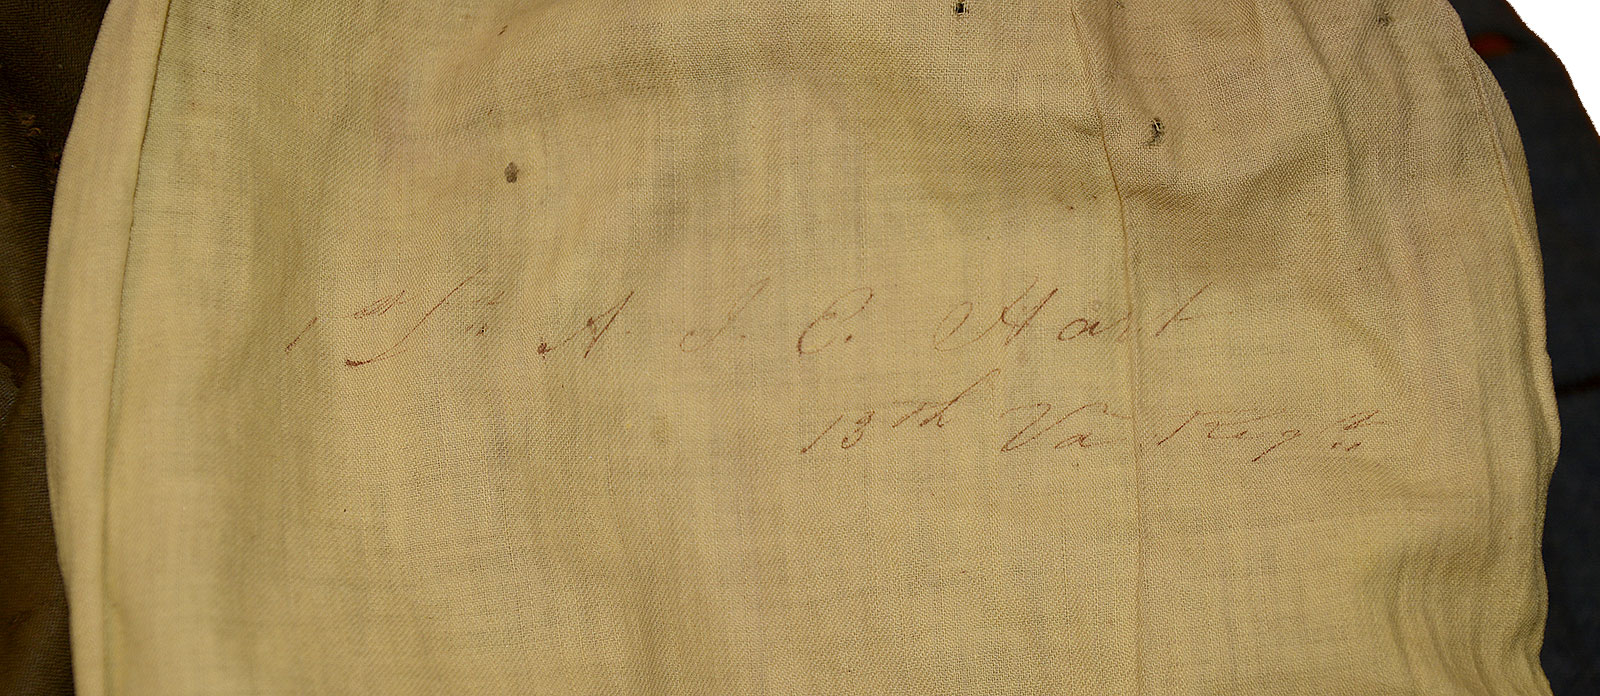 1st Lt. A. J. E. Hart
13th Va Regt.